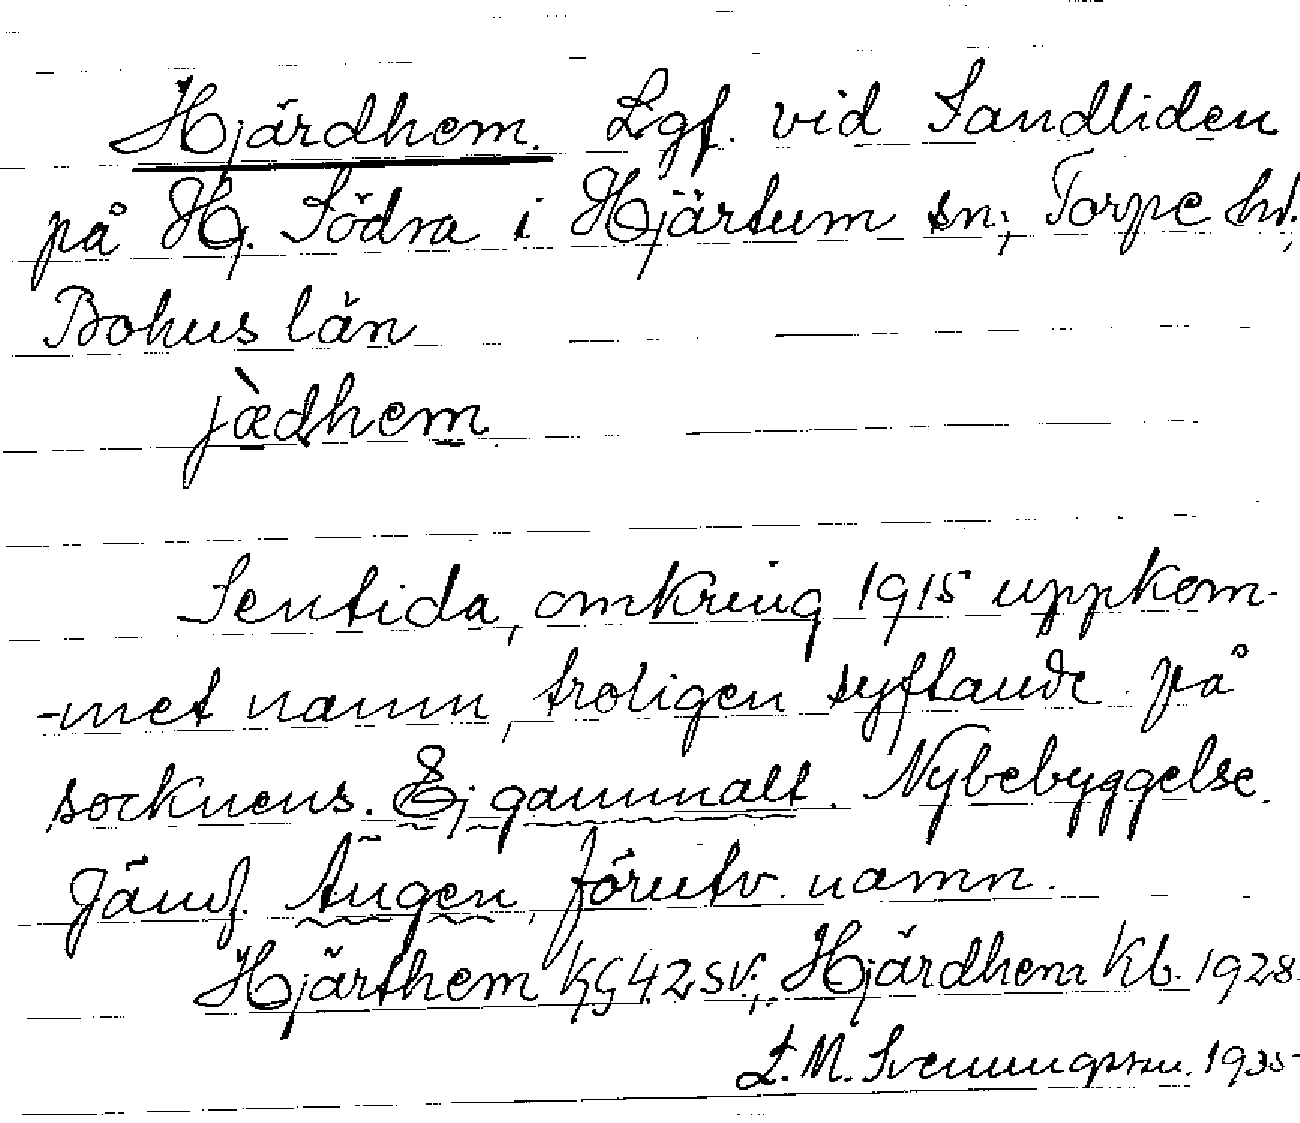 Hjärdhem. Lgf. vid Sandliden
på Hj. Södra i Hjärtum sn, Torpe hd,
Bohus län
jæ̀dhem
Sentida, omkring 1915 uppkom-
-met namn, troligen syftande på
socknens. Ej gammalt. Nybebyggelse.
Jämf. Ängen, förutv. namn.
Hjärthem KG42SV., Hjärdhem Kb. 1928
L. M. Svenungsson. 1935